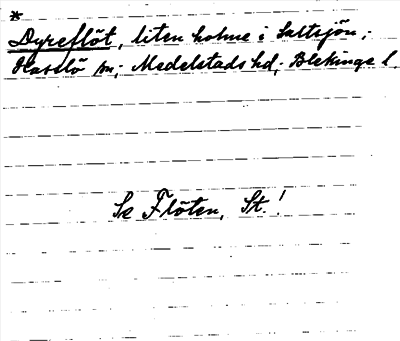 *
Dyreflöt, liten holme i Saltsjön,
Hasslö sn, Medelstads hd, Blekinge l.
Se Flöten, St.!